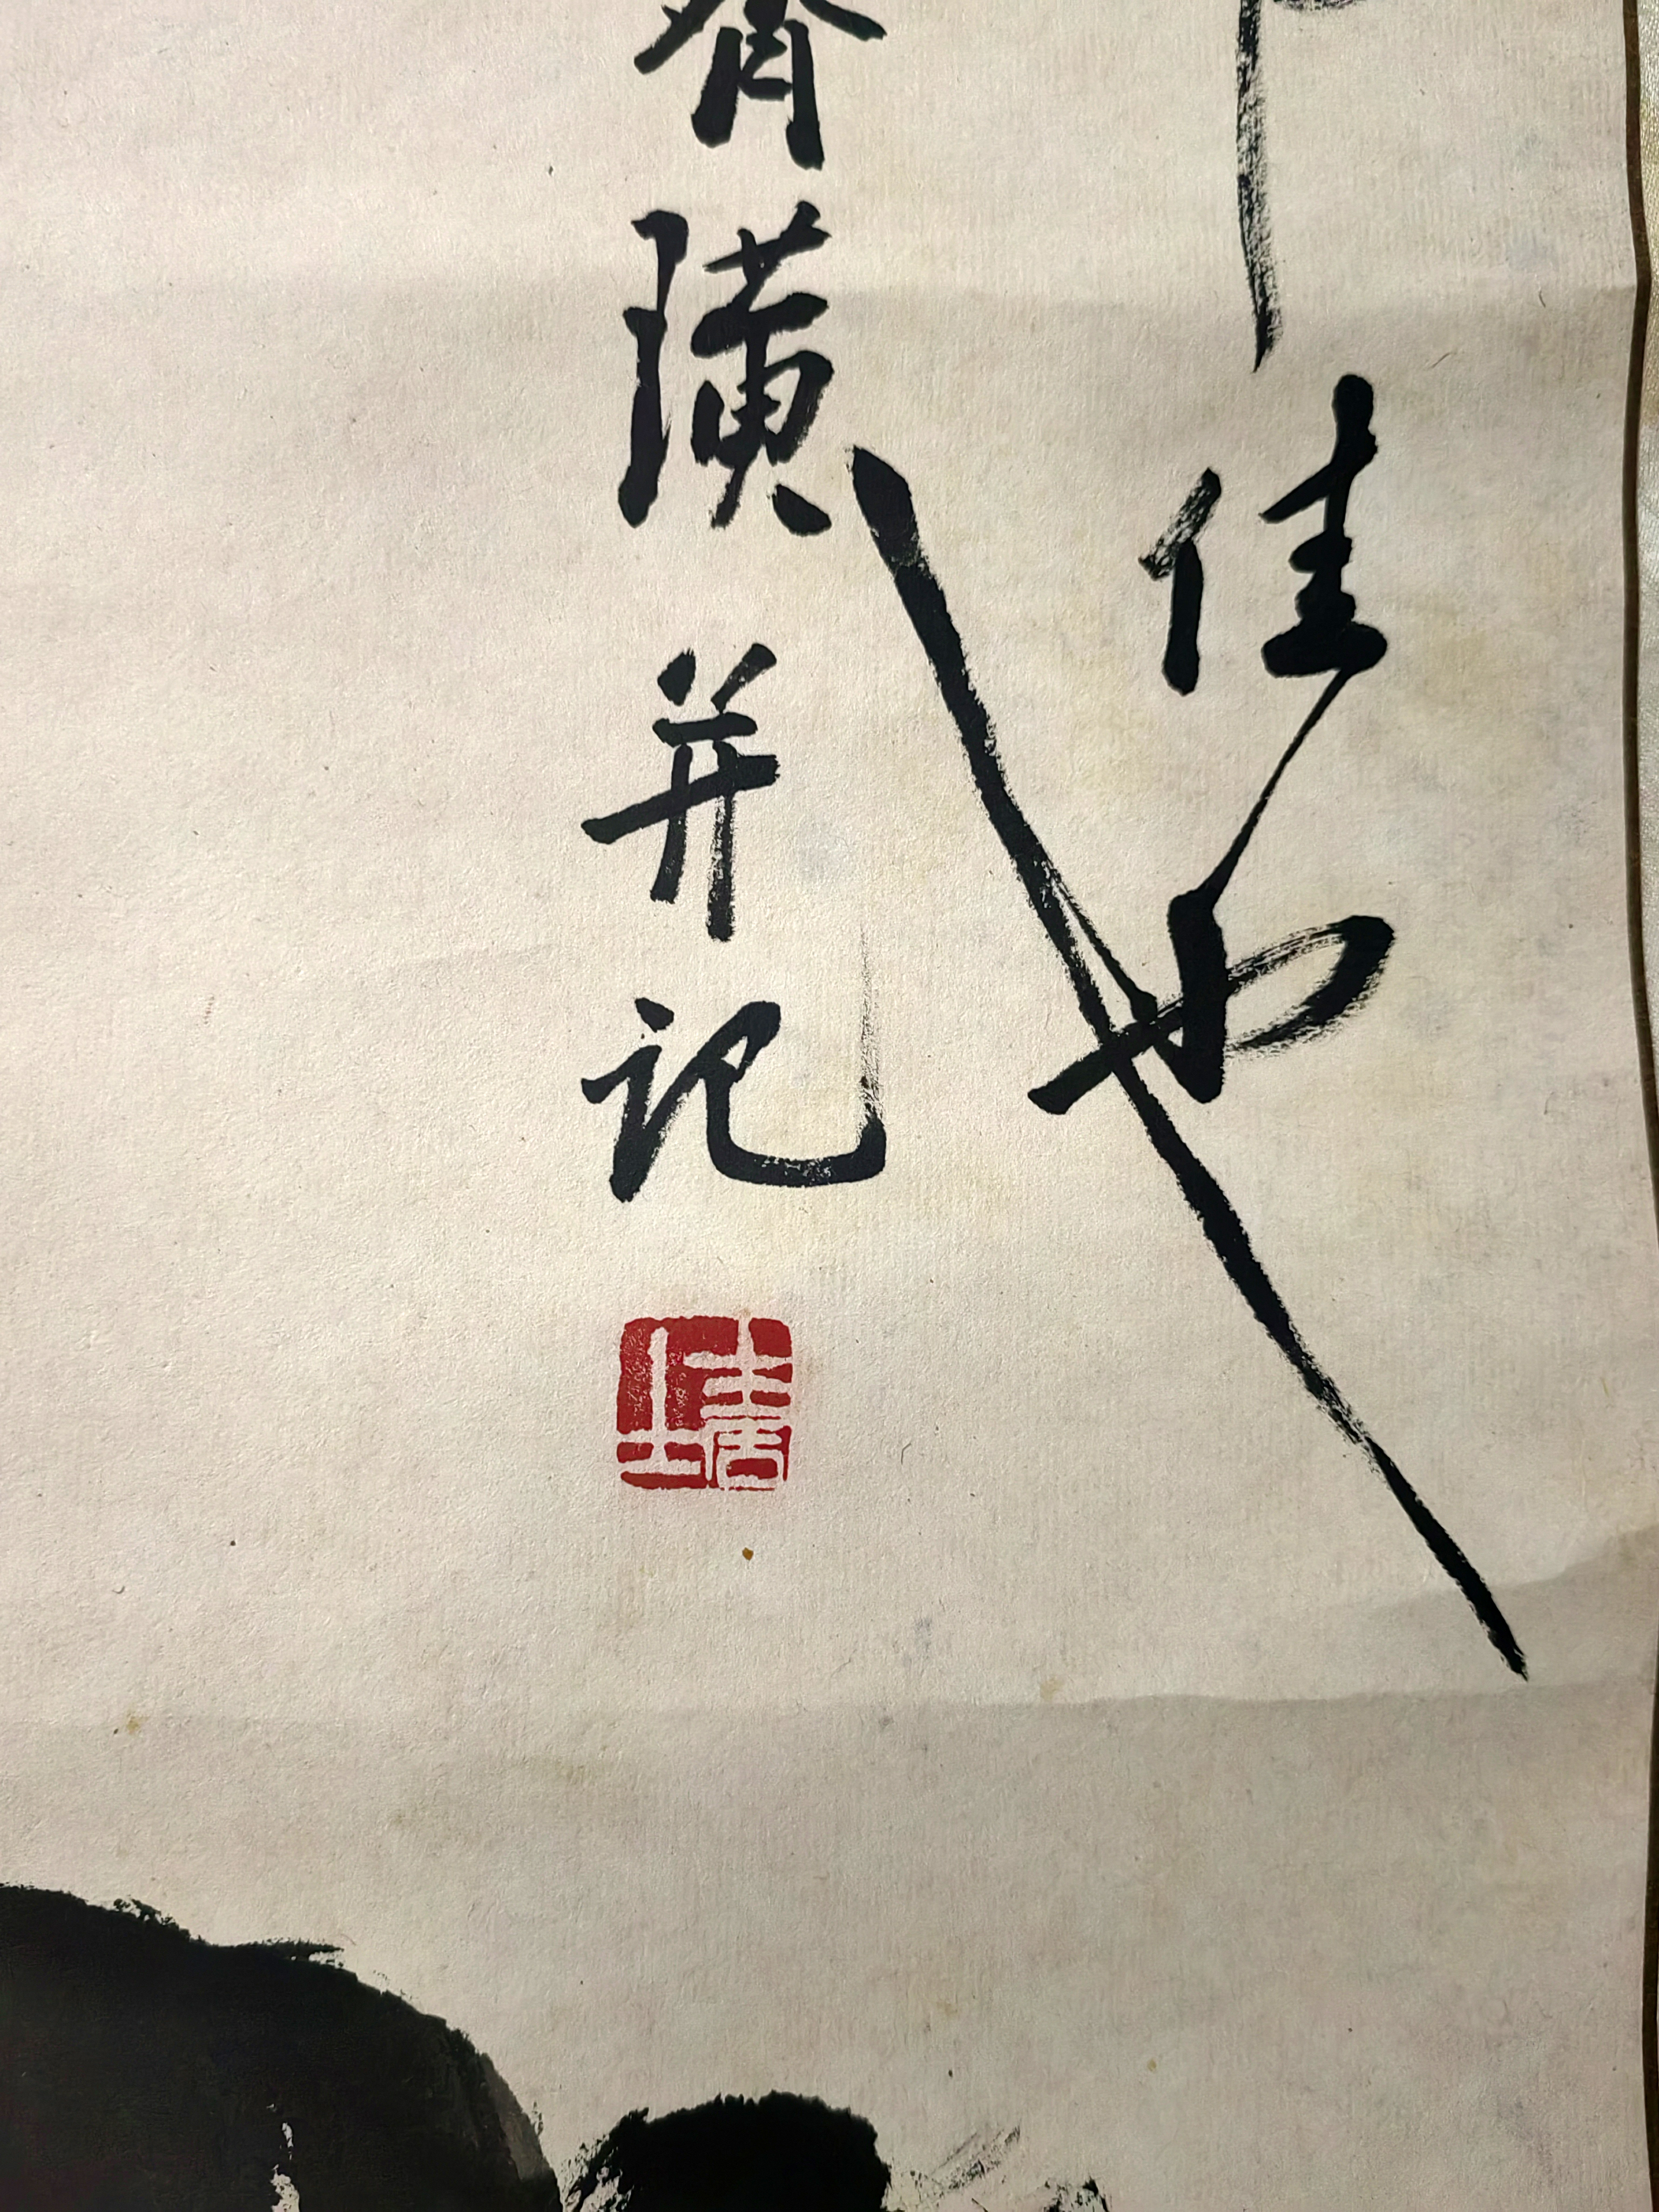 佳也
齊璜并记